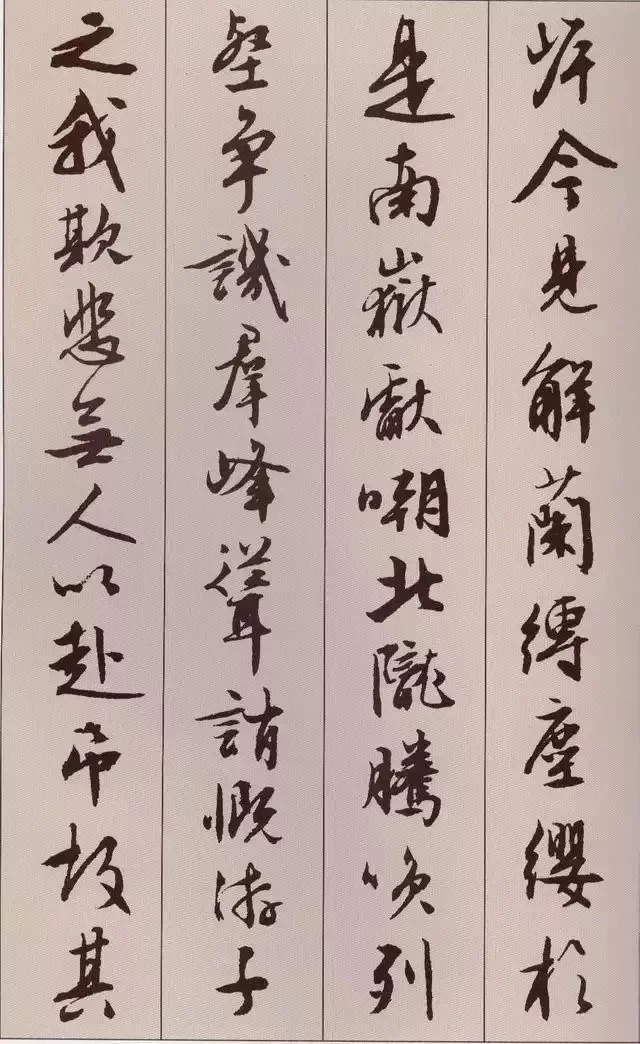 岸今見解蘭縛塵纓於
是南嶽獻嘲北隴騰笑列
壑争譏羣峰聳誚慨游子
之我欺悲無人以赴弔故其